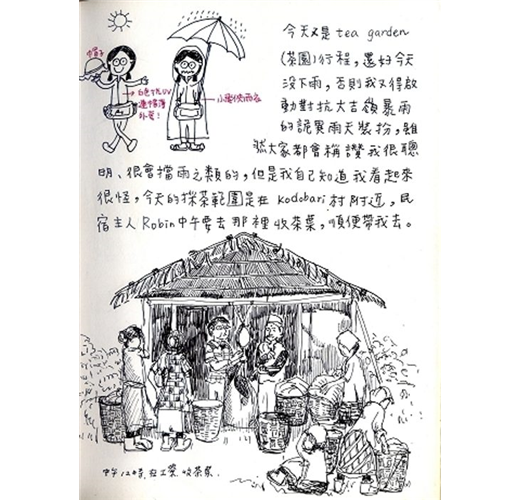 今天又是 tea garden
(茶園)行程，還好今天
沒下雨，否則我又得啟
動對抗大吉嶺暴雨
的詭異雨天裝扮，雖
然大家都會稱讚我很聰
明、很會擋雨之類的，但是我自己知道我看起來
很怪，今天的採茶範圍是在 Kodobari 村附近，民
宿主人 Robin 中午要去那裡收茶葉，順便帶我去。
帽子
白色抗UV
連帽薄
外套！
小飛俠雨衣
中午12時，在工寮收茶葉.